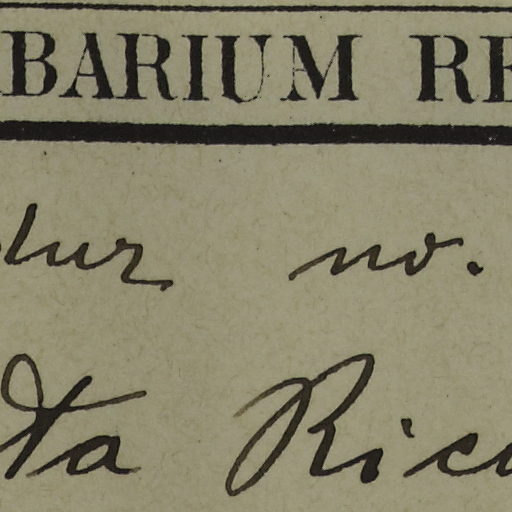 BARIUM RE
lur no.
ta Rica